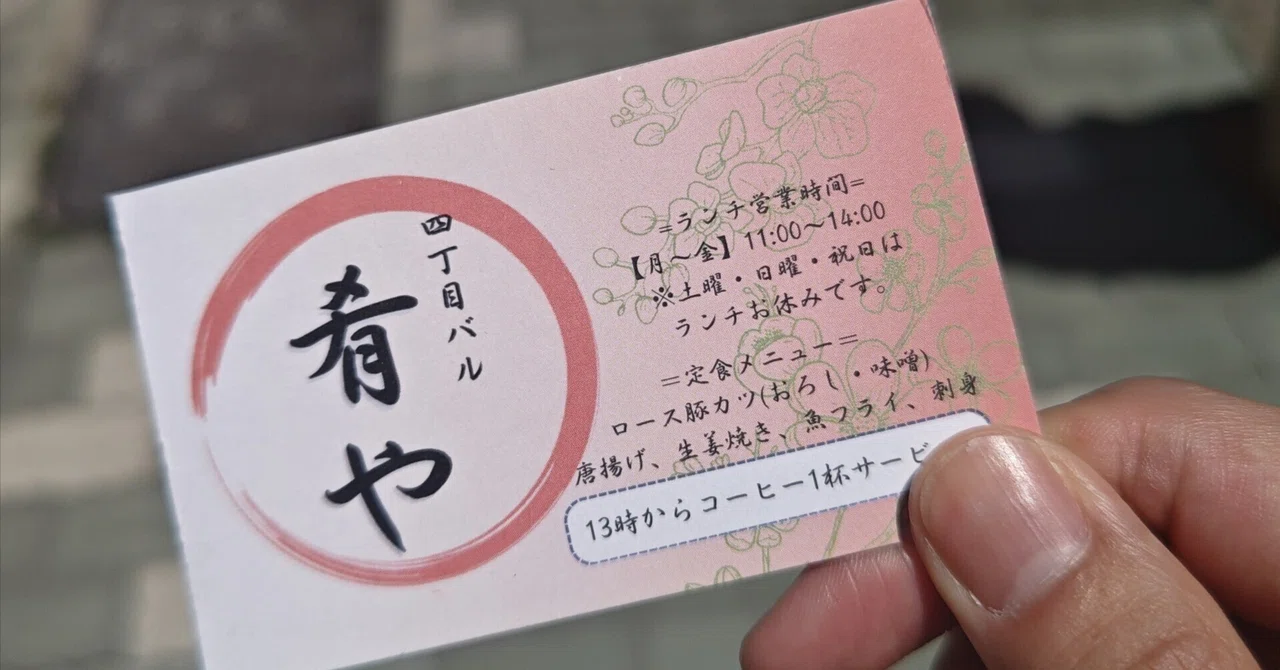 四丁目バル
肴や
=ランチ営業時間=
【月～金】11:00～14:00
※土曜・日曜・祝日は
ランチお休みです。
=定食メニュー=
ロース豚カツ(おろし・味噌)
唐揚げ、生姜焼き、魚フライ、刺身
13時からコーヒー1杯サービ